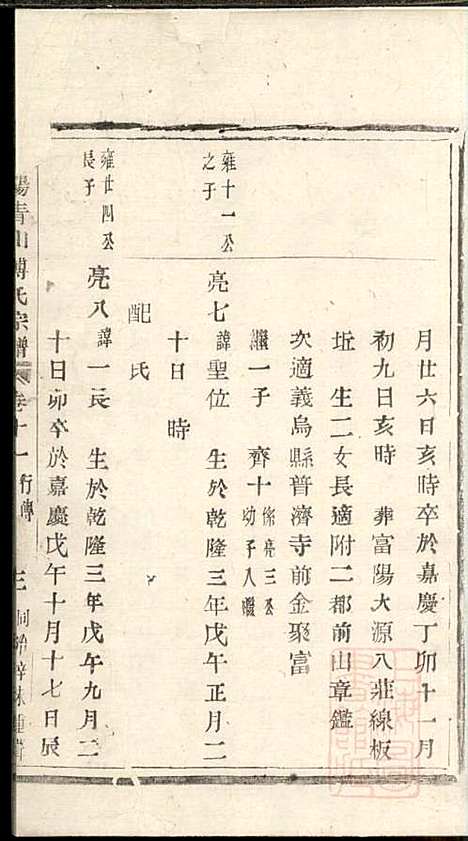 月廿六日亥時卒於嘉慶丁卯十一月
初九日亥時 葬富陽大源八莊線板
坵 生二女長適附二都前山章鑑
次適義烏縣普濟寺前金聚富
繼一子 齊十 係亮三公幼子入繼
雍十一公之子 亮七 諱聖位 生於乾隆三年戊午正月二
十日 時
配氏
雍廿四公長子 亮八 諱一長 生於乾隆三年戊午九月二
十日卯卒於嘉慶戊午十月十七日辰
陽青山傅氏宗譜 卷十一 行傳 三